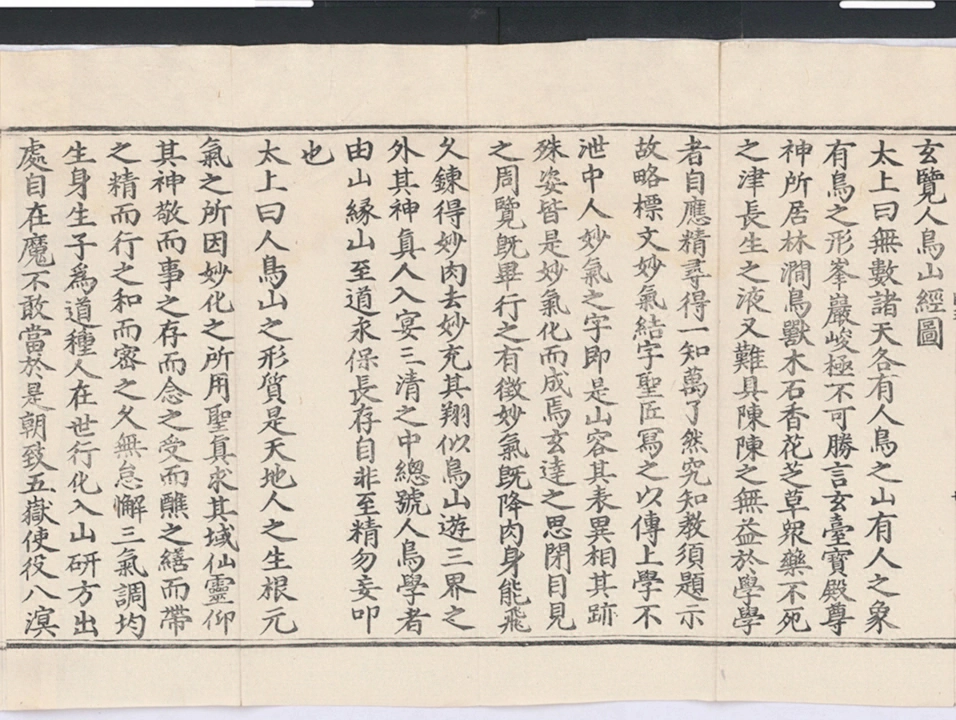 玄覽人鳥山經圖
太上曰無數諸天各有人鳥之山有人之象
有鳥之形峯巖峻極不可勝言玄臺寶殿尊
神所居林澗鳥獸木石香花芝草衆藥不死
之津長生之液又難具陳陳之無益於學學
者自應精尋得一知萬了然究知教須題示
故略標文妙氣結字聖匠冩之以傳上學不
泄中人妙氣之字即是山容其表異相其跡
殊姿皆是妙氣化而成焉玄達之思閉目見
之周覽旣畢行之有徵妙氣旣降肉身能飛
久鍊得妙肉去妙充其翔似鳥山遊三界之
外其神真人入宴三清之中總號人鳥學者
由山縁山至道永保長存自非至精勿妄叩
也
太上曰人鳥山之形質是天地人之生根元
氣之所因妙化之所用聖真求其域仙靈仰
其神敬而事之存而念之受而醮之繕而帶
之精而行之和而密之久無怠懈三氣調均
生身生子爲道種人在世行化入山研方出
處自在魔不敢當於是朝致五嶽使役八溟